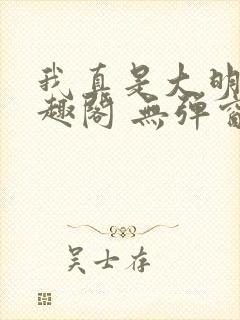 我真是大明
趣閣 無彈窗
吴士存